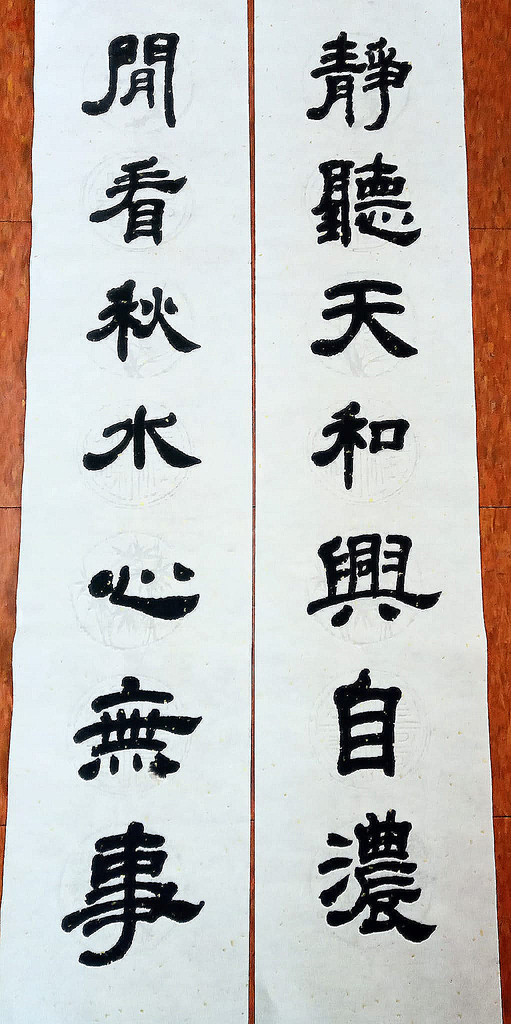 靜聽天和興自濃
閒看秋水心無事